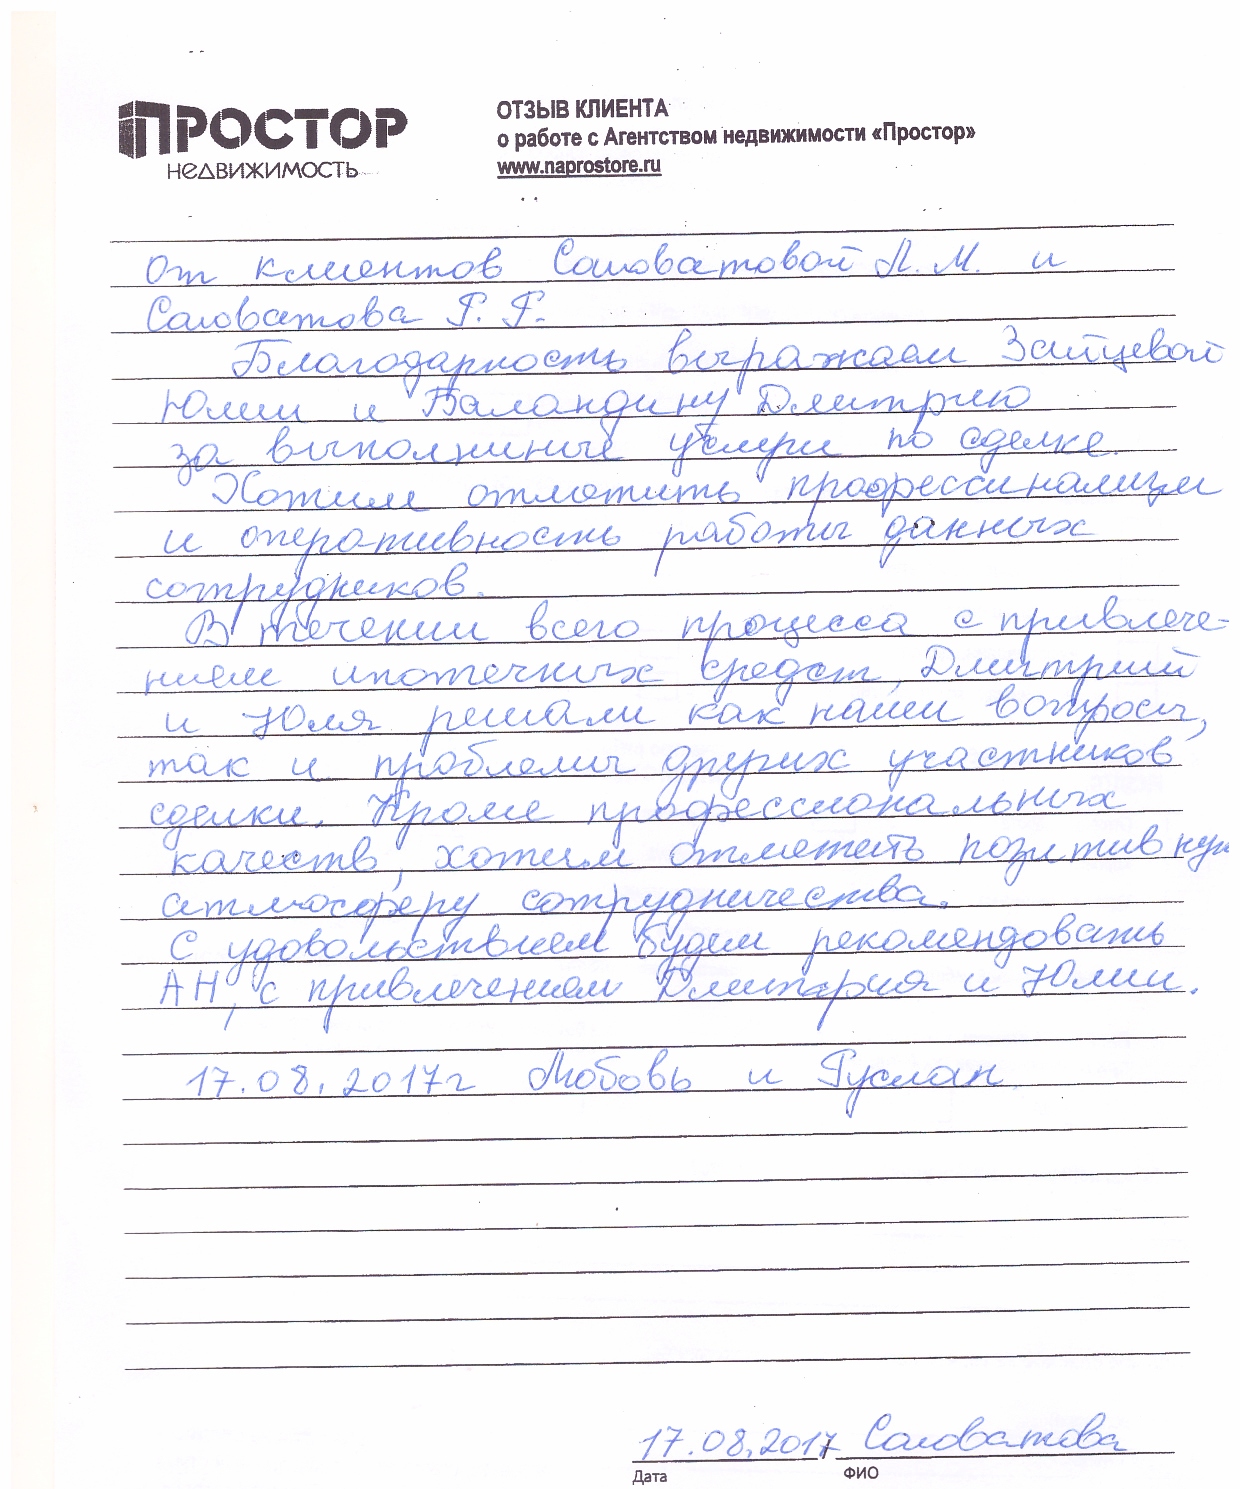 ПРОСТОР
НЕДВИЖИМОСТЬ
ОТЗЫВ КЛИЕНТА
о работе с Агентством недвижимости «Простор»
www.naprostore.ru
От клиентов Саловатовой Л. М. и
Саловатова Р. Г.
Благодарность выражаем Зайцевой
Юлии и Баландину Дмитрию
за выполниные услуги по сделке.
Хотим отметить профессинализм
и оперативность работы данных
сотрудников.
В течении всего процесса с привлече-
нием ипотечных средст, Дмитрий
и Юля решали как наши вопросы,
так и проблемы других участников
сделки. Кроме профессиональных
качеств, хотим отметить позитивную
атмосферу сотрудничества.
С удовольствием будем рекомендовать
АН, с привлечением Дмитрия и Юлии.
17.08.2017г Любовь и Руслан.
17.08.2017 Саловатова
Дата ФИО